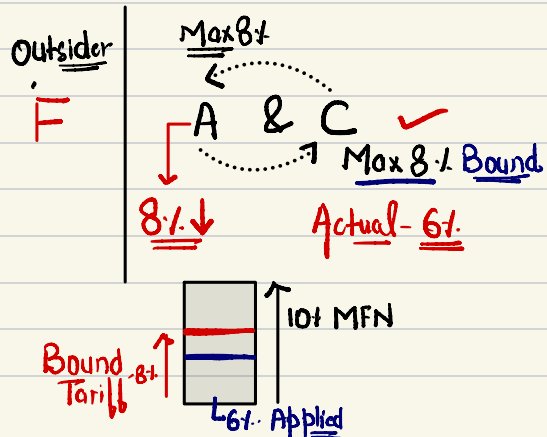 Outsider
F
Max 8%
A & C ✓
Max 8% Bound
8% ↓
Actual - 6%
10% MFN
Bound
Tariff - 8%
6% Applied